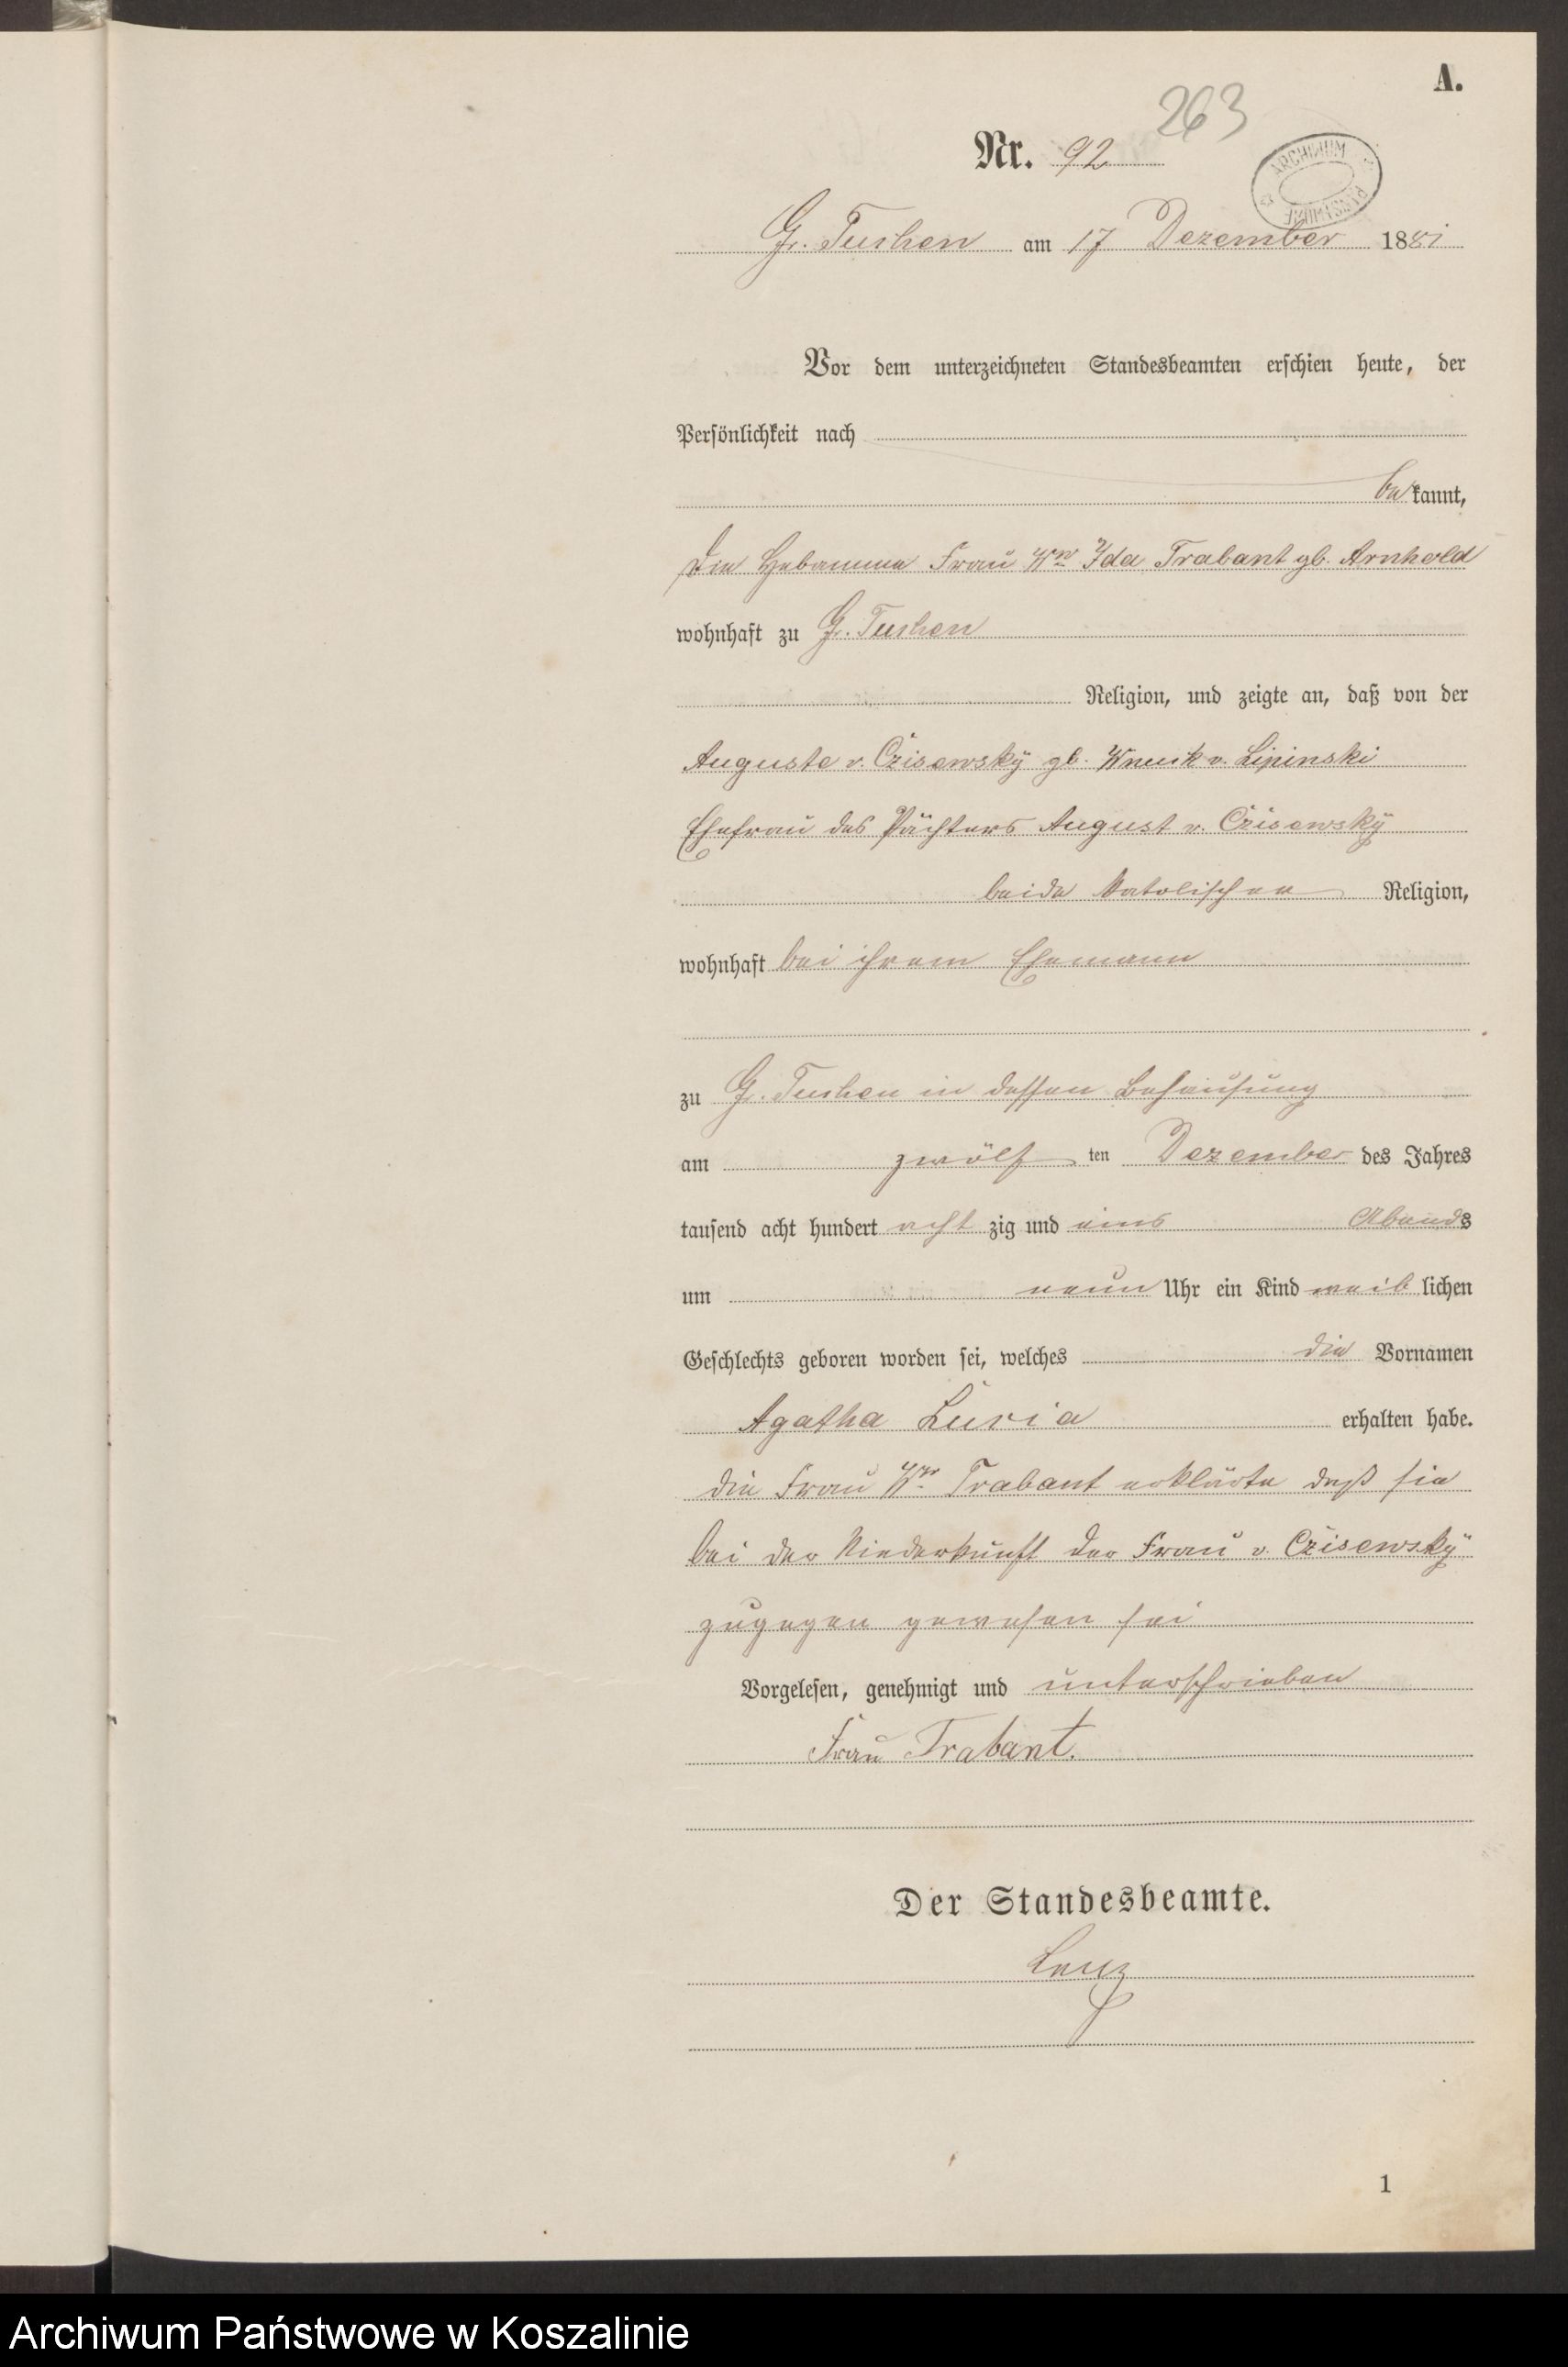 A.
263
Nr. 92
ARCHIWUM PAŃSTWOWE
Gr. Tuchen am 17 Dezember 1881
Vor dem unterzeichneten Standesbeamten erschien heute, der
Persönlichkeit nach
bekannt,
die Hebamme Frau Ww Ida Trabant gb. Arnhold
wohnhaft zu Gr. Tuchen
Religion, und zeigte an, daß von der
Auguste v. Czisewsky gb. Wnuck v. Lipinski
Ehefrau des Pächters August v. Czisewsky
beide katolischen Religion,
wohnhaft bei ihrem Ehemann
zu Gr. Tuchen in dessen Behausung
am zwölf ten Dezember des Jahres
tausend acht hundert acht zig und eins Abends
um neun Uhr ein Kind weib lichen
Geschlechts geboren worden sei, welches die Vornamen
Agatha erhalten habe.
die Frau Ww Trabant erklärte daß sie
bei der Niederkunft der Frau v. Czisewsky
zugegen gewesen sei
Vorgelesen, genehmigt und unterschrieben
Frau Trabant.
Der Standesbeamte.
Lenz
1
Archiwum Państwowe w Koszalinie